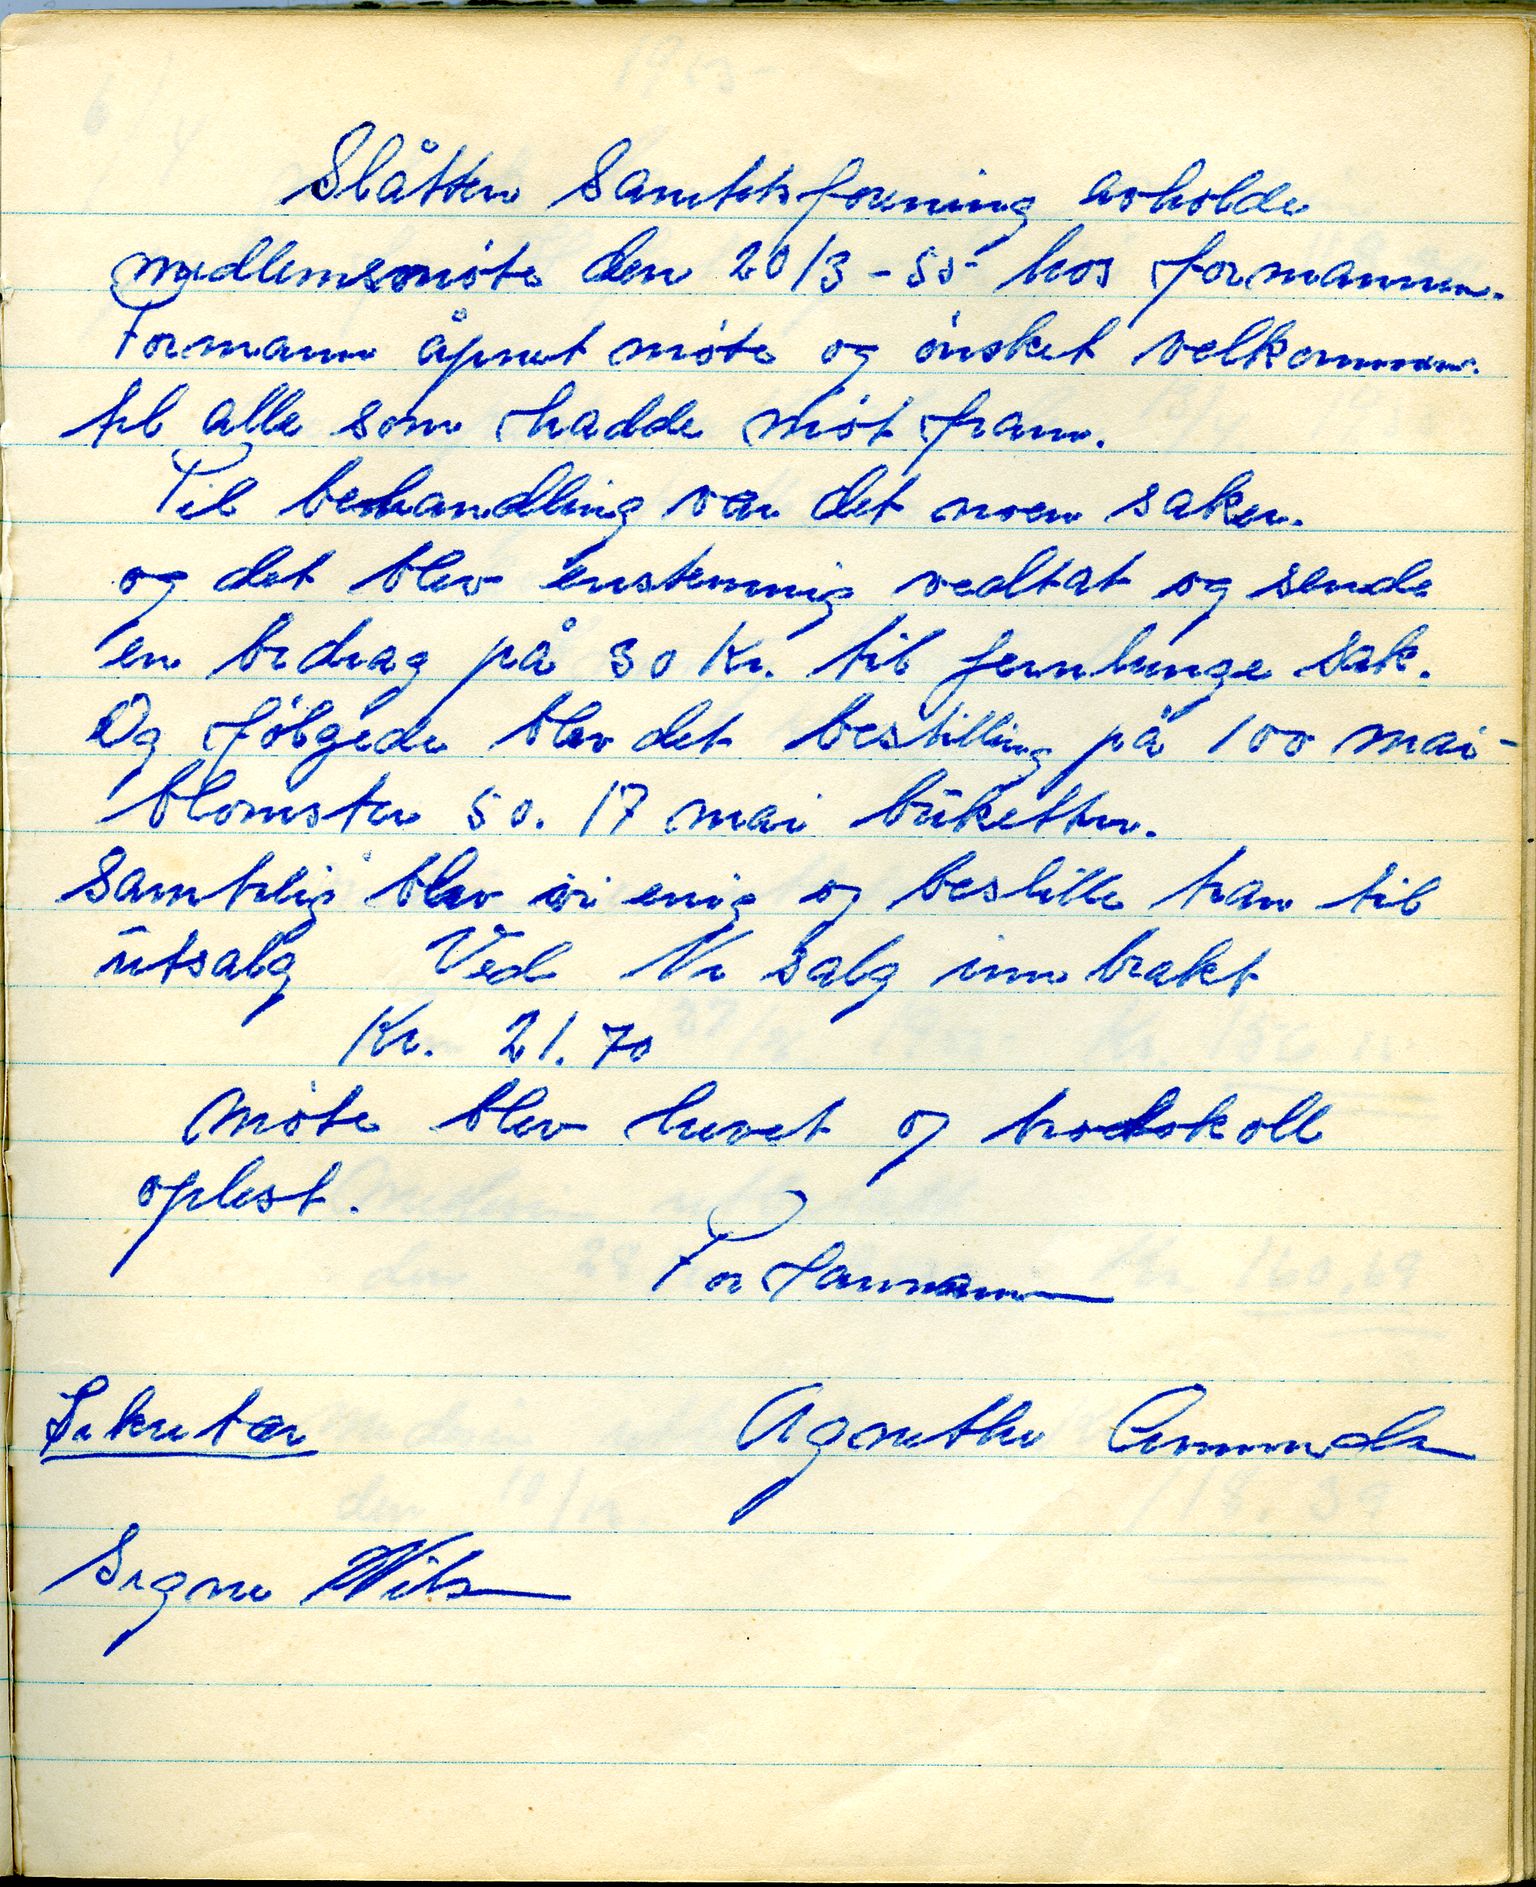 Slåtten Sanitetsforening avholde
medlemsmøte den 20/3-55 hos formannen.
Formann åpnet møte og ønsket velkommen
til alle som hadde møt fram.
Til behandling var det noen saker.
og det blev enstemmig vedtat og sende
en bidrag på 30 Kr. til jernlunge sak.
Og følgede blev det bestilling på 100 mai-
blomster 50. 17 mai buketter.
Samtelig blev vi enig og bestille tran til
utsalg Ved Vi salg inn brakt
Kr. 21.70
Møte blev hevet og protokoll
oplest.
For Formann
Sekretær Agnethe
Signe